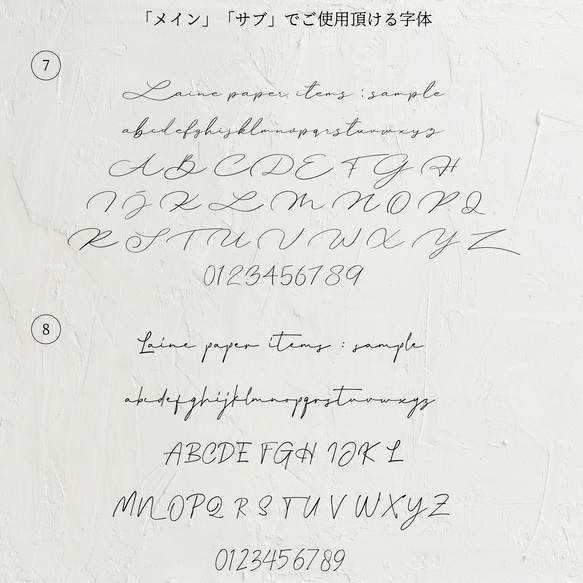 「メイン」「サブ」でご使用頂ける字体
7
Laine paper items : sample
abcdefghijklmnopqrstuvwxyz
A B C D E F G H
I J K L M N O P Q
R S T U V W X Y Z
0123456789
8
Laine paper items : sample
abcdefghijklmnopqrstuvwxyz
ABCDE FGH IJK L
MNOPQ R S TU V WXYZ
0123456789